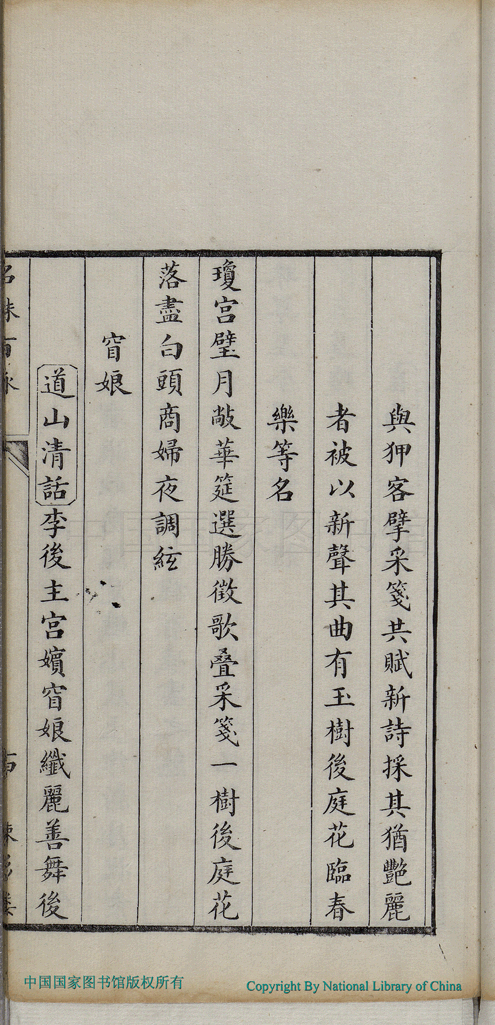 與狎客擘采箋共賦新詩採其猶艷麗
者被以新聲其曲有玉樹後庭花臨春
樂等名
瓊宮璧月敞華筵選勝徵歌疊采箋一樹後庭花
落盡白頭商婦夜調絃
窅娘
道山清話李後主宮嬪窅娘纖麗善舞後
名姝百詠
中国国家图书馆版权所有
Copyright By National Library of China